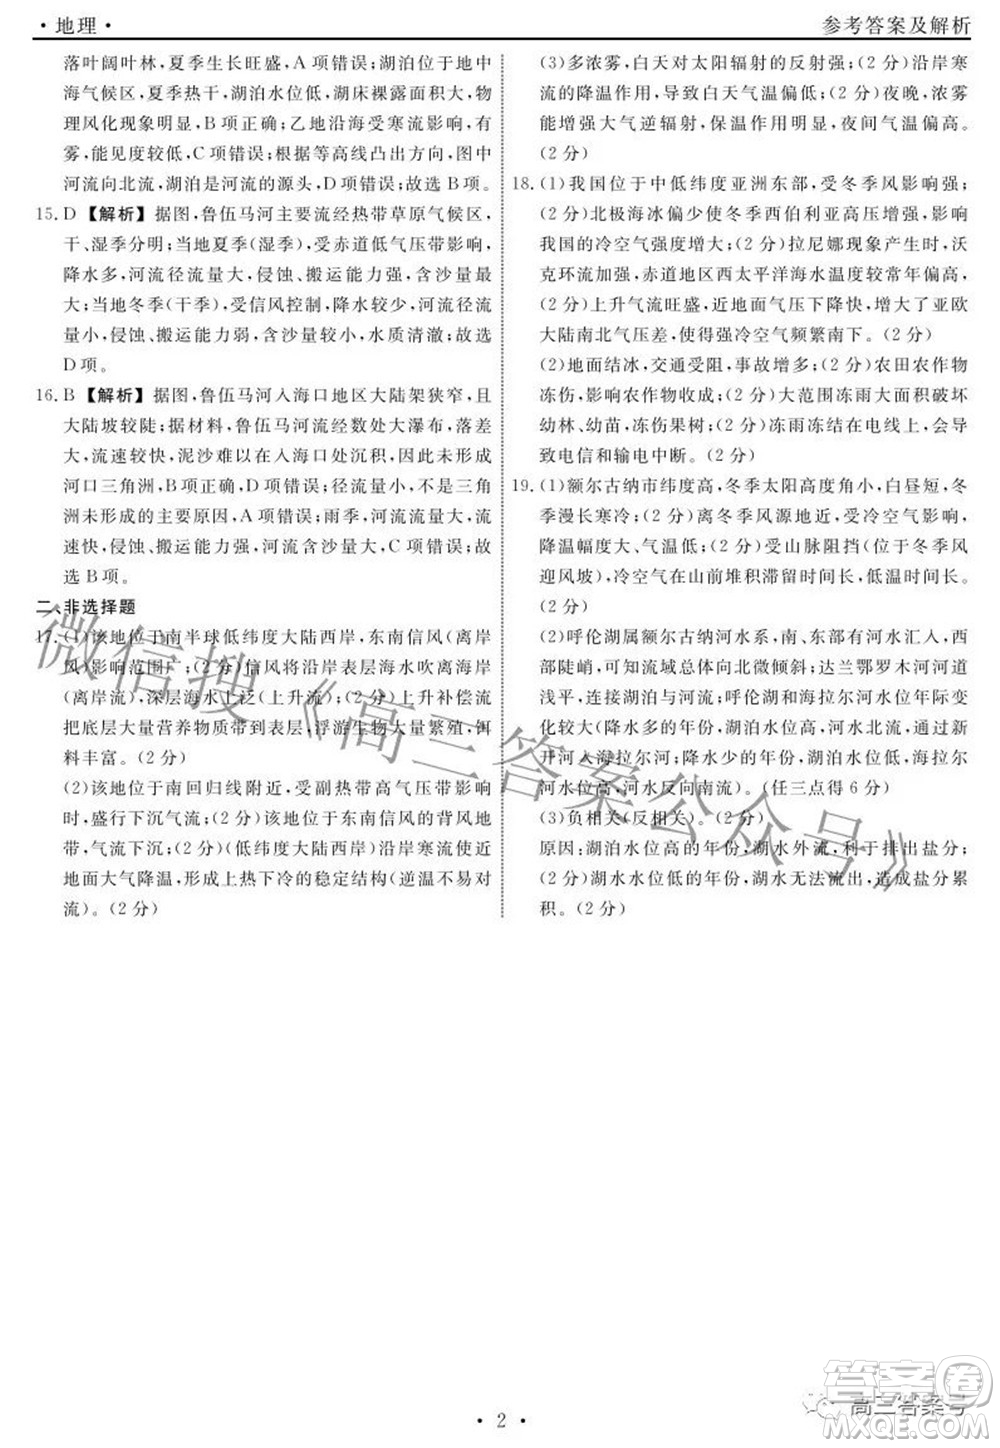 ·地理·
参考答案及解析
落叶阔叶林,夏季生长旺盛,A项错误;湖泊位于地中
海气候区,夏季热干,湖泊水位低,湖床裸露面积大,物
理风化现象明显,B项正确;乙地沿海受寒流影响,有
雾,能见度较低,C项错误;根据等高线凸出方向,图中
河流向北流,湖泊是河流的源头,D项错误;故选B项。
15. D 【解析】据图,鲁伍马河主要流经热带草原气候区,
干、湿季分明;当地夏季(湿季),受赤道低气压带影响,
降水多,河流径流量大,侵蚀、搬运能力强,含沙量大;
当地冬季(干季),受信风控制,降水较少,河流径流
量小,侵蚀、搬运能力弱,含沙量较小,水质清澈;故选
D项。
16. B 【解析】据图,鲁伍马河入海口地区大陆架狭窄,且
大陆坡较陡;据材料,鲁伍马河流经数处大瀑布,落差
大,流速较快,泥沙难以在入海口处沉积,因此未形成
河口三角洲,B项正确,D项错误;风浪较大不是三角
洲未形成的主要原因,A项错误;雨季,河流流量大,流
速快,侵蚀、搬运能力强,河流含沙量大,C项错误;故
选B项。
二、非选择题
17. (1)该地位于南半球低纬度大陆西岸,东南信风(离岸
风)影响范围广;(2分)信风将沿岸表层海水吹离海岸
(离岸流),深层海水上泛(上升流);(2分)上升补偿流
把底层大量营养物质带到表层,浮游生物大量繁殖,饵
料丰富。(2分)
(2)该地位于南回归线附近,受副热带高气压带影响
时,盛行下沉气流;(2分)该地位于东南信风的背风地
带,气流下沉;(2分)(低纬度大陆西岸)沿岸寒流使近
地面大气降温,形成上热下冷的稳定结构(逆温不易对
流)。(2分)
(3)多浓雾,白天对太阳辐射的反射强;(2分)沿岸寒
流的降温作用,导致白天气温偏低;(2分)夜晚,浓雾
能增强大气逆辐射,保温作用较强,夜间气温偏高。
(2分)
18. (1)我国位于中低纬度亚洲东部,受冬季风影响强;
(2分)北极海冰偏少,使得西伯利亚高压偏强,影响
我国的冷空气强度增大;(2分)拉尼娜现象产生时,沃
克环流加强,赤道地区西太平洋海水温度较常年偏高,
(2分)上升气流旺盛,近地面气压下降快,增大了亚欧
大陆南北气压差,使得强冷空气频繁南下。(2分)
(2)地面结冰,交通受阻,事故增多;(2分)农田农作物
冻伤,影响农作物收成;(2分)大范围冻雨天气破坏
幼林、幼苗,冻伤果树;(2分)冻雨冻结在电线上,会导
导致电信和输电中断。(2分)
19. (1)额尔古纳市纬度高,冬季太阳高度角小,白昼短,冬
季漫长寒冷;(2分)离冬季风源地近,受冷空气影响,
降温幅度大,气温低;(2分)受山脉阻挡(位于冬季风
迎风坡),冷空气在山前堆积滞留时间长,低温时间长。
(2分)
(2)呼伦湖属额尔古纳河水系,南、东部有河水汇入,西
部陡峭,可知流域总体地势向北微倾斜;达兰鄂罗木河河道
浅平,连接湖泊与河流;呼伦湖和海拉尔河水位年际变
化较大(降水多的年份,湖泊水位高,河水北流,人工新
开河流入海拉尔河;降水少的年份,湖泊水位低,海拉尔
河水位高,河水反向南流)。(任三点得6分)
(3)负相关(反相关)。(2分)
原因:湖泊水位高的年份,湖水外流,利于排出盐分;
(2分)湖水水位低的年份,湖水无法流出,造成盐分累
积。(2分)
微信搜《高三答案公众号》
·2·
高三答案号
答案圈
MXQE.COM